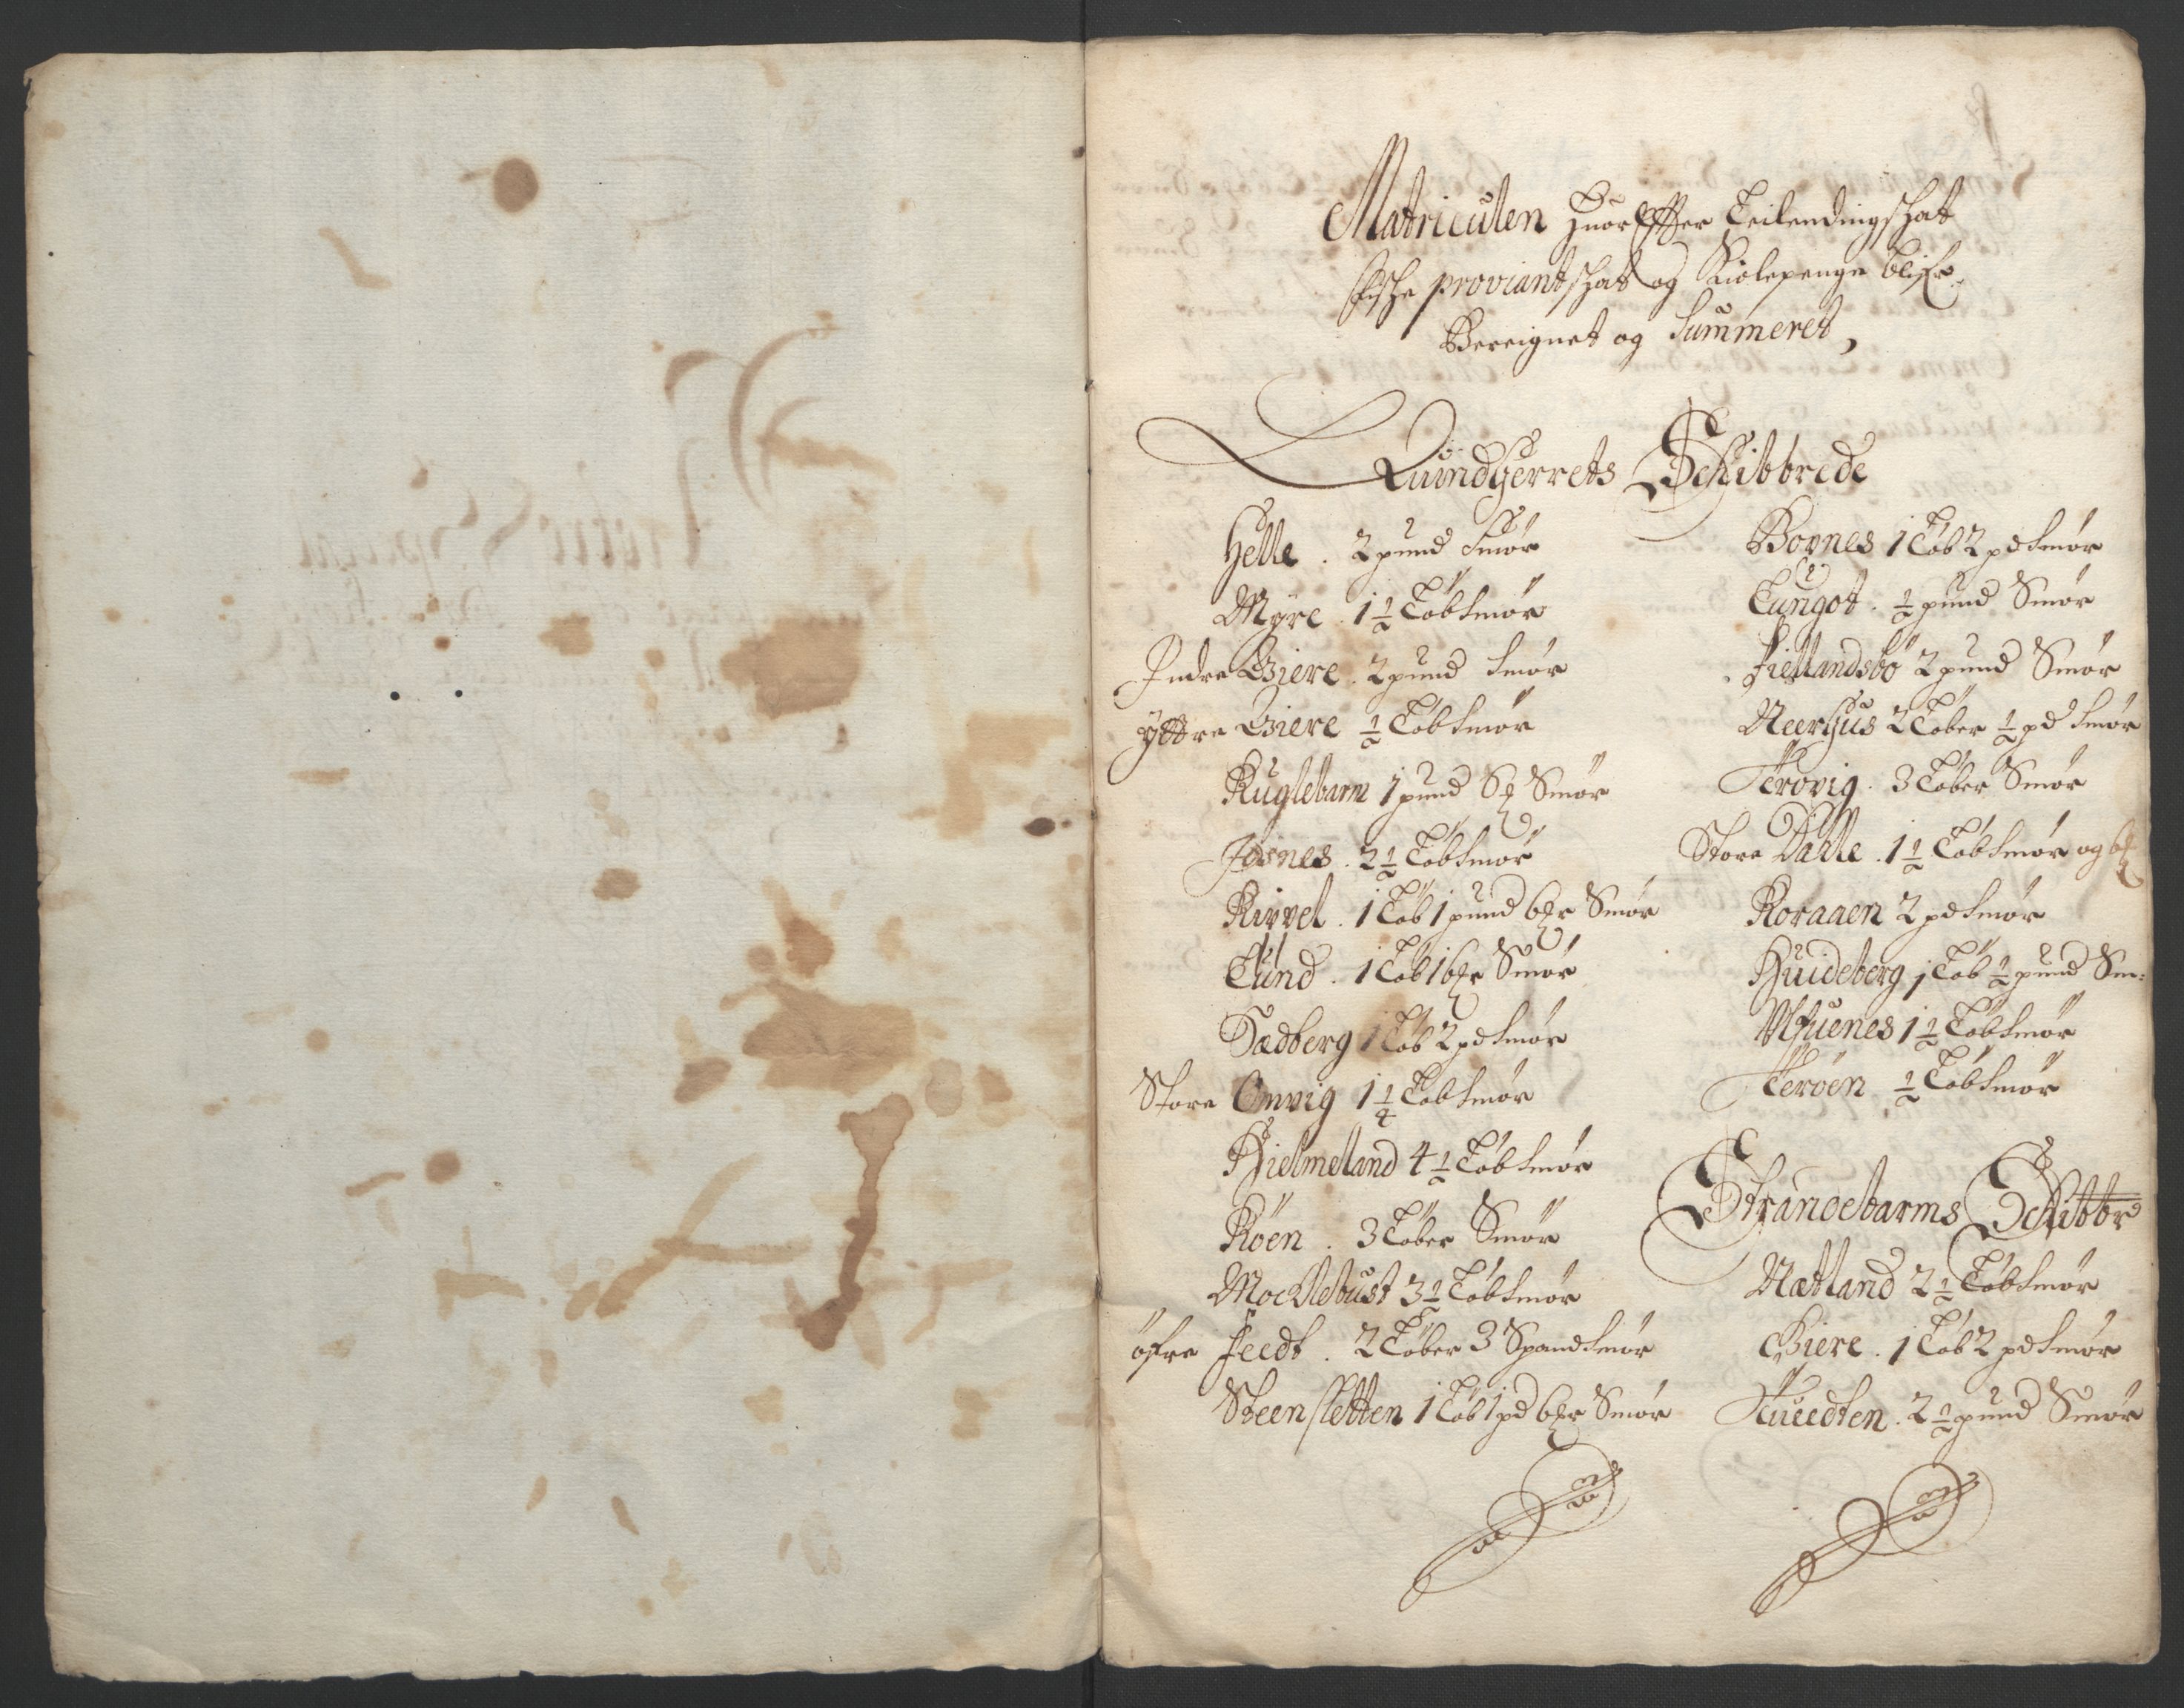 Matriculen Huor Effter Leilendingschat
sche proviantschat og Kiolepenge blifr
Bereignet og Summeret,
Quindherrets Schibbrede
Helle . 2 pund Smör
Myre . 1 1/2 Löb Smör
Indre Giere . 2 pund Smör
Yttre Giere 1/2 Löb Smör
Kuglebarm 1 pund Smör
Josnes . 2 1/2 Löb Smör
Kirvel . 1 Löb 1 pund 6 Smör
Lund . 1 Löb 16 Smör
Sædberg 1 Löb 2 pd Smör
Store Omvig 1 1/4 Löb Smör
Hielmeland 4 1/2 Löb Smör
Röen . 3 Löber Smör
Mocklebust 3 1/2 Löb Smör
öfre Feedt . 2 Löber 3 Spand Smör
Steensletten 1 Löb 1 pd 6 Smör
Bornes 1 Löb 2 pd Smör
Tungot . 1/2 pund Smör
Fiellandsbö 2 pund Smör
Neerhus 2 Löber 1/2 pd Smör
Terovig . 3 Löber Smör
Store Dalle . 1 1/2 Löb Smör og
Koraaen 2 pd Smör
Huideberg 1 Löb 1/2 pund Sm:
Alsuenes 1 1/2 Löb Smör
Teröen 1/2 Löb Smör
Strandebarms Schibbr
Nætland 2 1/2 Löb Smör
Giere . 1 Löb 2 pd Smör
Tueedten . 2 1/2 pund Smör